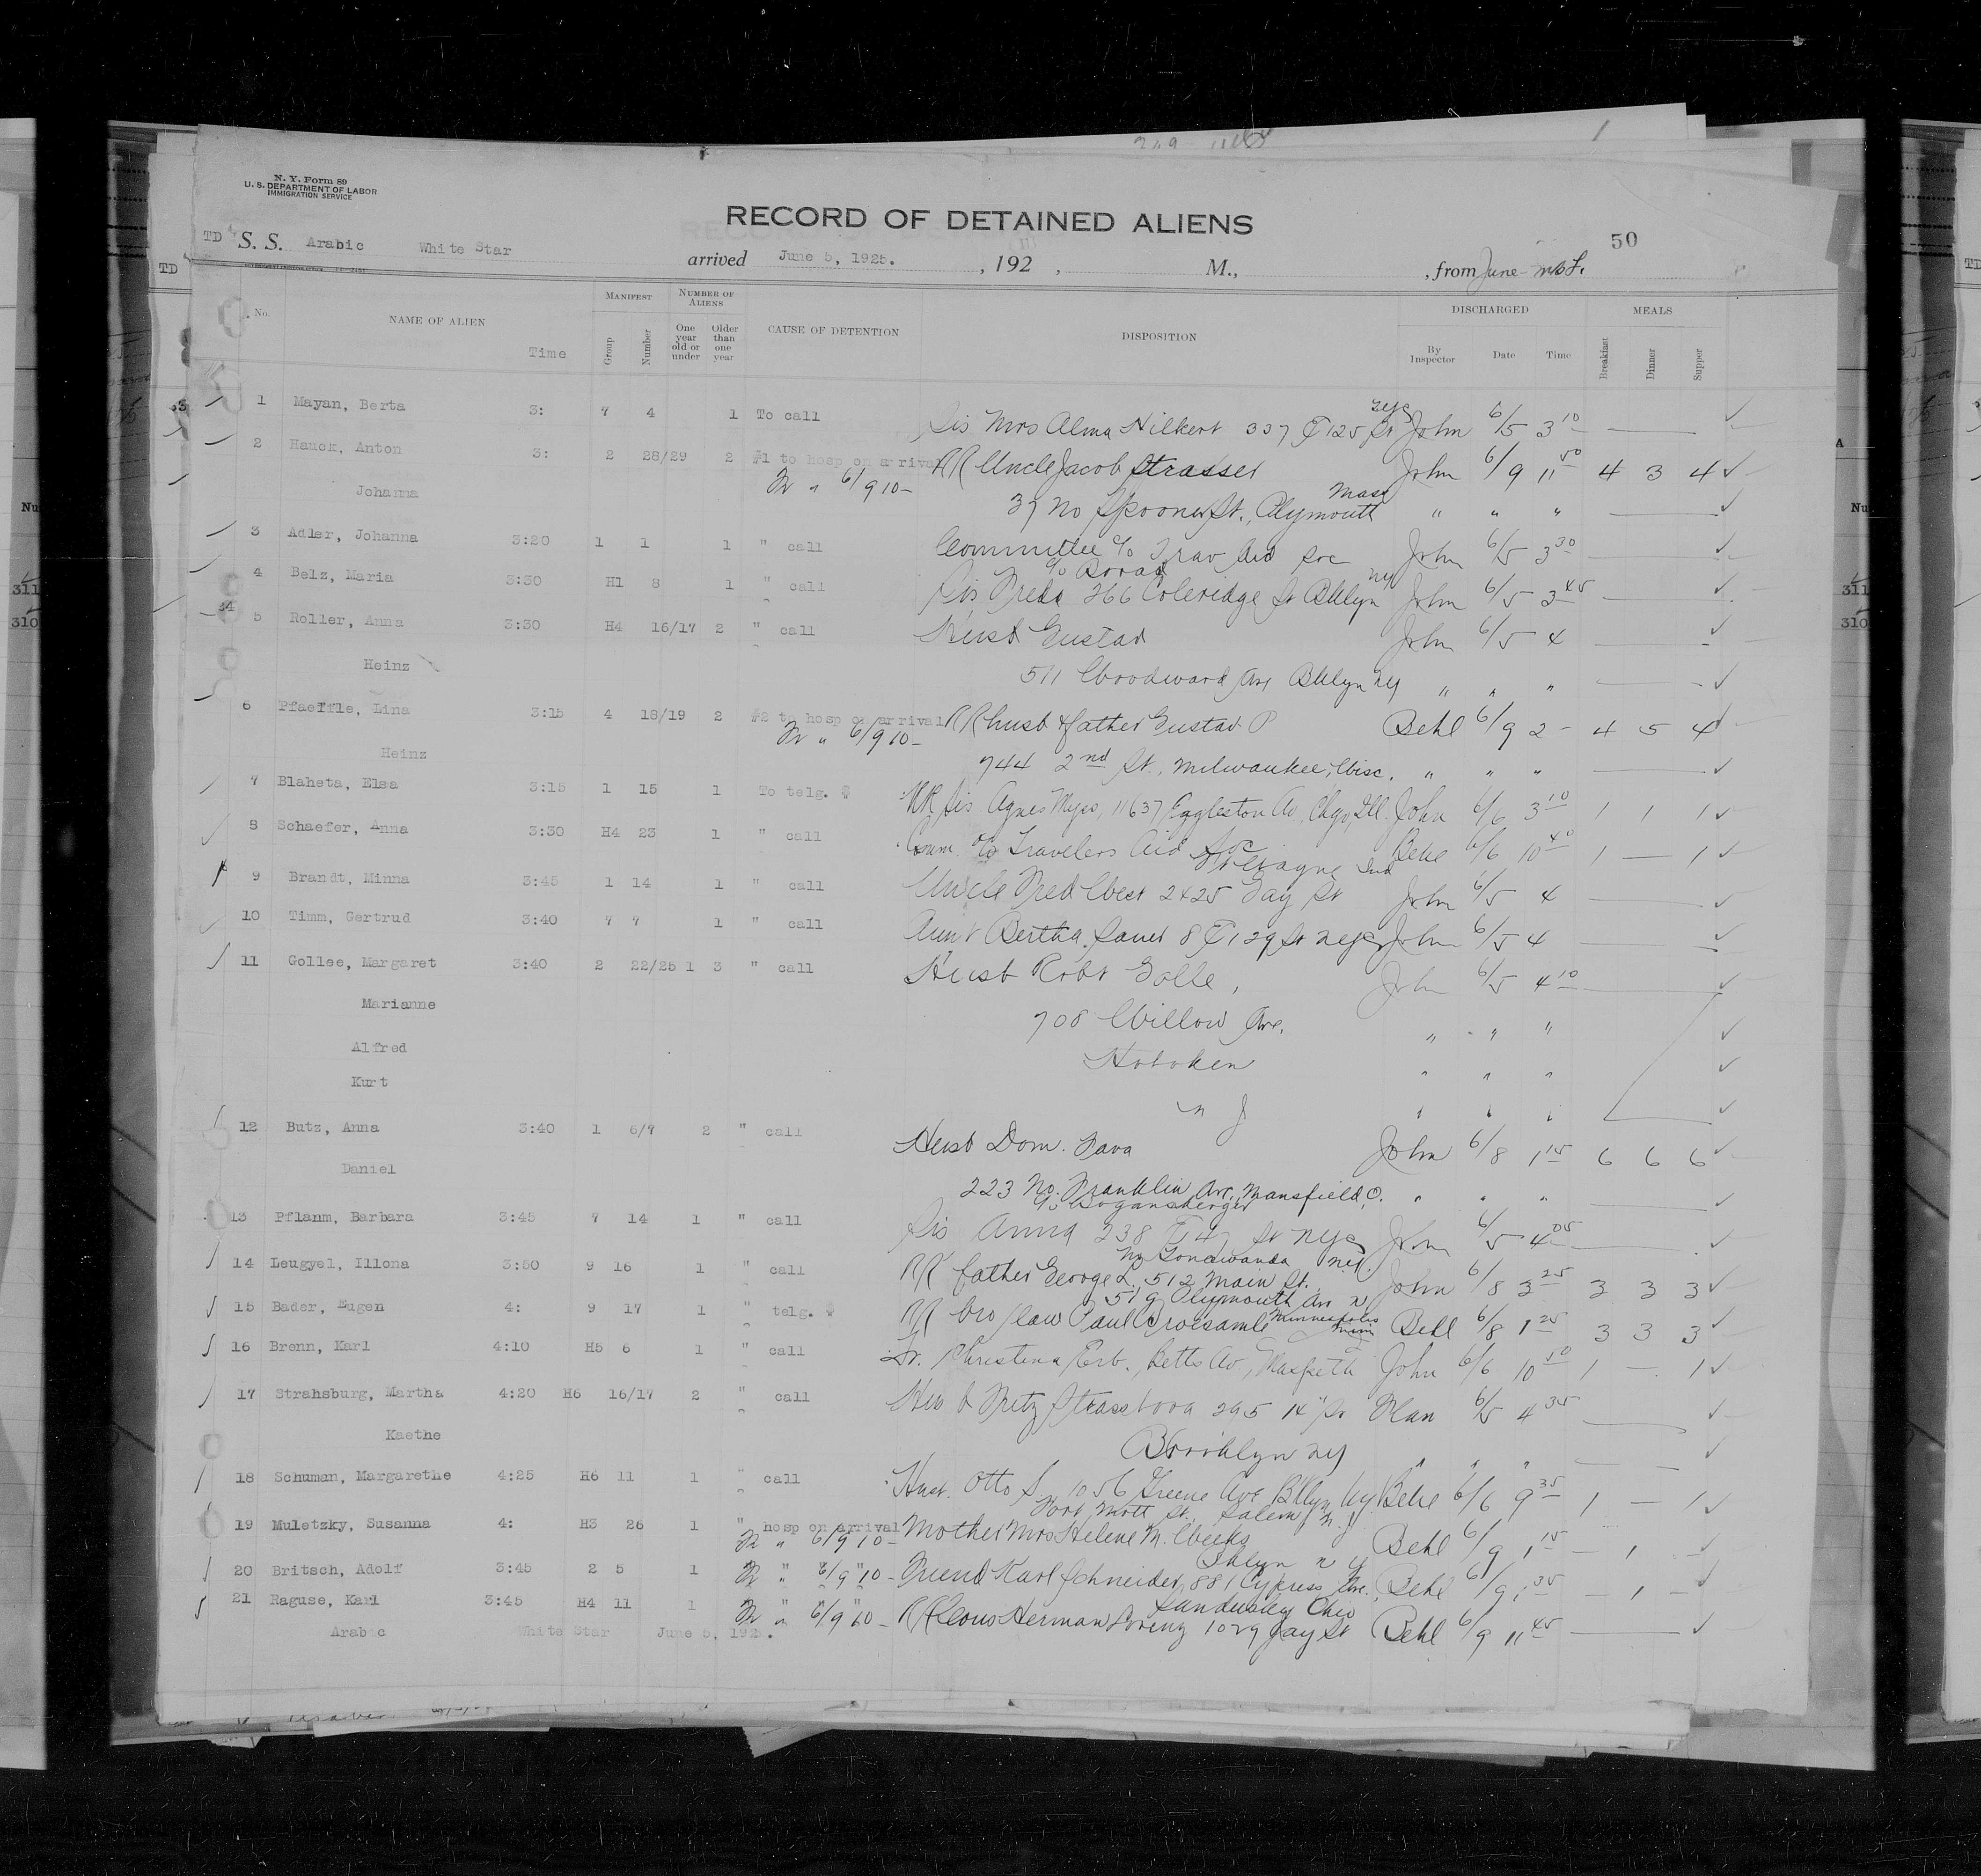 N. Y. Form 89
U. S. DEPARTMENT OF LABOR
IMMIGRATION SERVICE
RECORD OF DETAINED ALIENS
50
TD S. S. Arabic White Star arrived June 5, 1925. , 192 , M., , from June
No. NAME OF ALIEN Time MANIFEST Group Number NUMBER OF ALIENS One year old or under Older than one year CAUSE OF DETENTION DISPOSITION DISCHARGED By Inspector Date Time MEALS Breakfast Dinner Supper
1 Mayan, Berta 3: 7 4 1 To call Sis Mrs Alma Hilkert 337 E 125 St nyc John 6/5 3 10
2 Hauck, Anton 3: 2 28/29 2 #1 to hosp on arrival RR Uncle Jacob Strasser John 6/9 11 50 4 3 4
Johanna 6/9 10- 37 No Spooner St., Plymouth Mass " " "
3 Adler, Johanna 3:20 1 1 1 " call Committee c/o Trav Aid Soc John 6/5 3 30
4 Belz, Maria 3:30 H1 8 1 " call Sis Freda 266 Coleridge St Bklyn ny John 6/5 3 45
5 Roller, Anna 3:30 H4 16/17 2 " call Husb Gustav John 6/5 4
Heinz 511 Woodward Ave Bklyn ny " " "
6 Pfaeffle, Lina 3:15 4 18/19 2 #2 to hosp on arrival RR husb & father Gustav P Behl 6/9 2- 4 5 4
6/9 10-
Heinz 744 2nd St, Milwaukee, Wisc. " " "
7 Blaheta, Elsa 3:15 1 15 1 To telg. RR Sis Agnes 11637 Eggleston Av, Chgo, Ill. John 6/6 3 10 1 1 1
8 Schaefer, Anna 3:30 H4 23 1 " call Comm c/o Travelers Aid Soc 6/6 10 40 1 — 1
Ft Wayne Ind
9 Brandt, Minna 3:45 1 14 1 " call Uncle Fred West 2425 Gay St John 6/5 4
10 Timm, Gertrud 3:40 7 7 1 " call Aunt Bertha Sauer 8 E 129 St nyc John 6/5 4
11 Gollee, Margaret 3:40 2 22/25 1 3 " call Husb Robt Golle, John 6/5 4 10
Marianne 708 Willow Ave. " " "
Alfred Hoboken " " "
Kurt N J " " "
12 Butz, Anna 3:40 1 6/7 2 " call Husb Dom. John 6/8 1 15 6 6 6
Daniel 223 No. Franklin Ave. Mansfield, O. " " "
13 Pflanm, Barbara 3:45 7 14 1 " call Sis Anna 238 E 47 St nyc John 6/5 4 05
No Tonawanda
14 Leugyel, Illona 3:50 9 16 1 " call RR father George L. 512 Main St. John 6/8 3 25 3 3 3
519 Plymouth Av N
15 Bader, Eugen 4: 9 17 1 " telg. RR bro/law Paul Minneapolis Minn Behl 6/8 1 25 3 3 3
16 Brenn, Karl 4:10 H5 6 1 " call Fr. Christina Erb, Betts Av, Maspeth John 6/6 10 50 1 — 1
17 Strahsburg, Martha 4:20 H6 16/17 2 " call Husb Fritz 295 14" St 6/5 4 35
Kaethe Brooklyn ny " " "
18 Schuman, Margarethe 4:25 H6 11 1 " call Husb. Otto S. 1056 Greene Ave Bklyn ny 6/6 9 35 1 — 1
Fort Mott St. Salem N. J.
19 Muletzky, Susanna 4: H3 26 1 " hosp on arrival Mother Mrs Helene M. Weeks Behl 6/9 1 15 — 1 —
6/9 10-
Bklyn N Y
20 Britsch, Adolf 3:45 2 5 1 " " 6/9 10- Friend Karl Schneider, 881 Cypress Ave. Behl 6/9 1 35 — 1 —
Sandusky Ohio
21 Raguse, Karl 3:45 H4 11 1 " " 6/9 10- RR Cous Herman Lorenz 1029 Jay St Behl 6/9 11 45
Arabic White Star June 5, 1925.